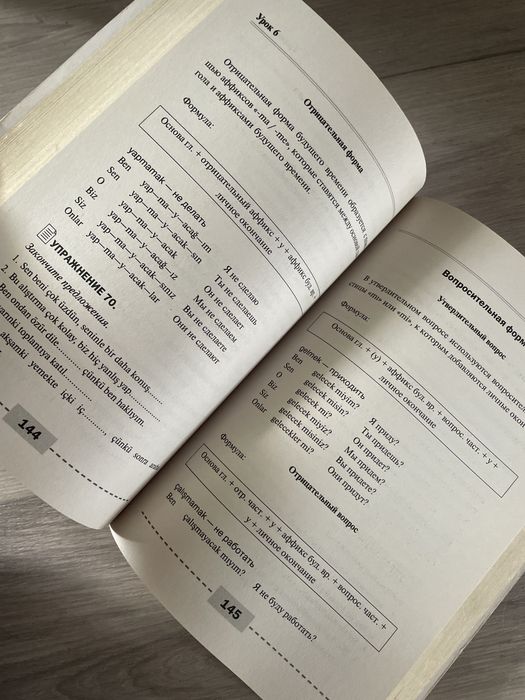 Урок 6
Отрицательная форма
Отрицательная форма будущего времени образуется с
щью аффиксов «-ma / -me», которые ставятся между основой
гола и аффиксами будущего времени.
Формула:
Основа гл. + отрицательный аффикс + y + аффикс буд. вр. +
личное окончание
yapmamak — не делать
Ben yap—ma—y—acağ—ım Я не сделаю
Sen yap—ma—y—acak—sın Ты не сделаешь
O yap—ma—y—acak Он не сделает
Biz yap—ma—y—acağ—ız Мы не сделаем
Siz yap—ma—y—acak—sınız Вы не сделаете
Onlar yap—ma—y—acak—lar Они не сделают
УПРАЖНЕНИЕ 70.
Закончите предложения.
1. Sen beni çok üzdün, seninle bir daha konuş............
2. Bu alıştırma çok kolay, biz hiç yanlış yap............
Ben ondan özür dile............ çünkü ben haklıyım.
toplantıya katıl............
akşamki yemekte içki iç............ çünkü
144
Вопросительная форма
Утвердительный вопрос
В утвердительном вопросе используются вопросител
стицы «mı» или «mi», к которым добавляются личные окон
Формула:
Основа гл. + (y) + аффикс буд. вр. + вопрос. част. + y +
личное окончание
gelmek — приходить
Ben gelecek miyim? Я приду?
Sen gelecek misin? Ты придешь?
O gelecek mi? Он придет?
Biz gelecek miyiz? Мы придем?
Siz gelecek misiniz? Вы придете?
Onlar gelecekler mi? Они придут?
Отрицательный вопрос
Формула:
Основа гл. + отр. част. + y + аффикс буд. вр. + вопрос. част. +
y + личное окончание
çalışmamak — не работать
Ben çalışmayacak mıyım? Я не буду работать?
145